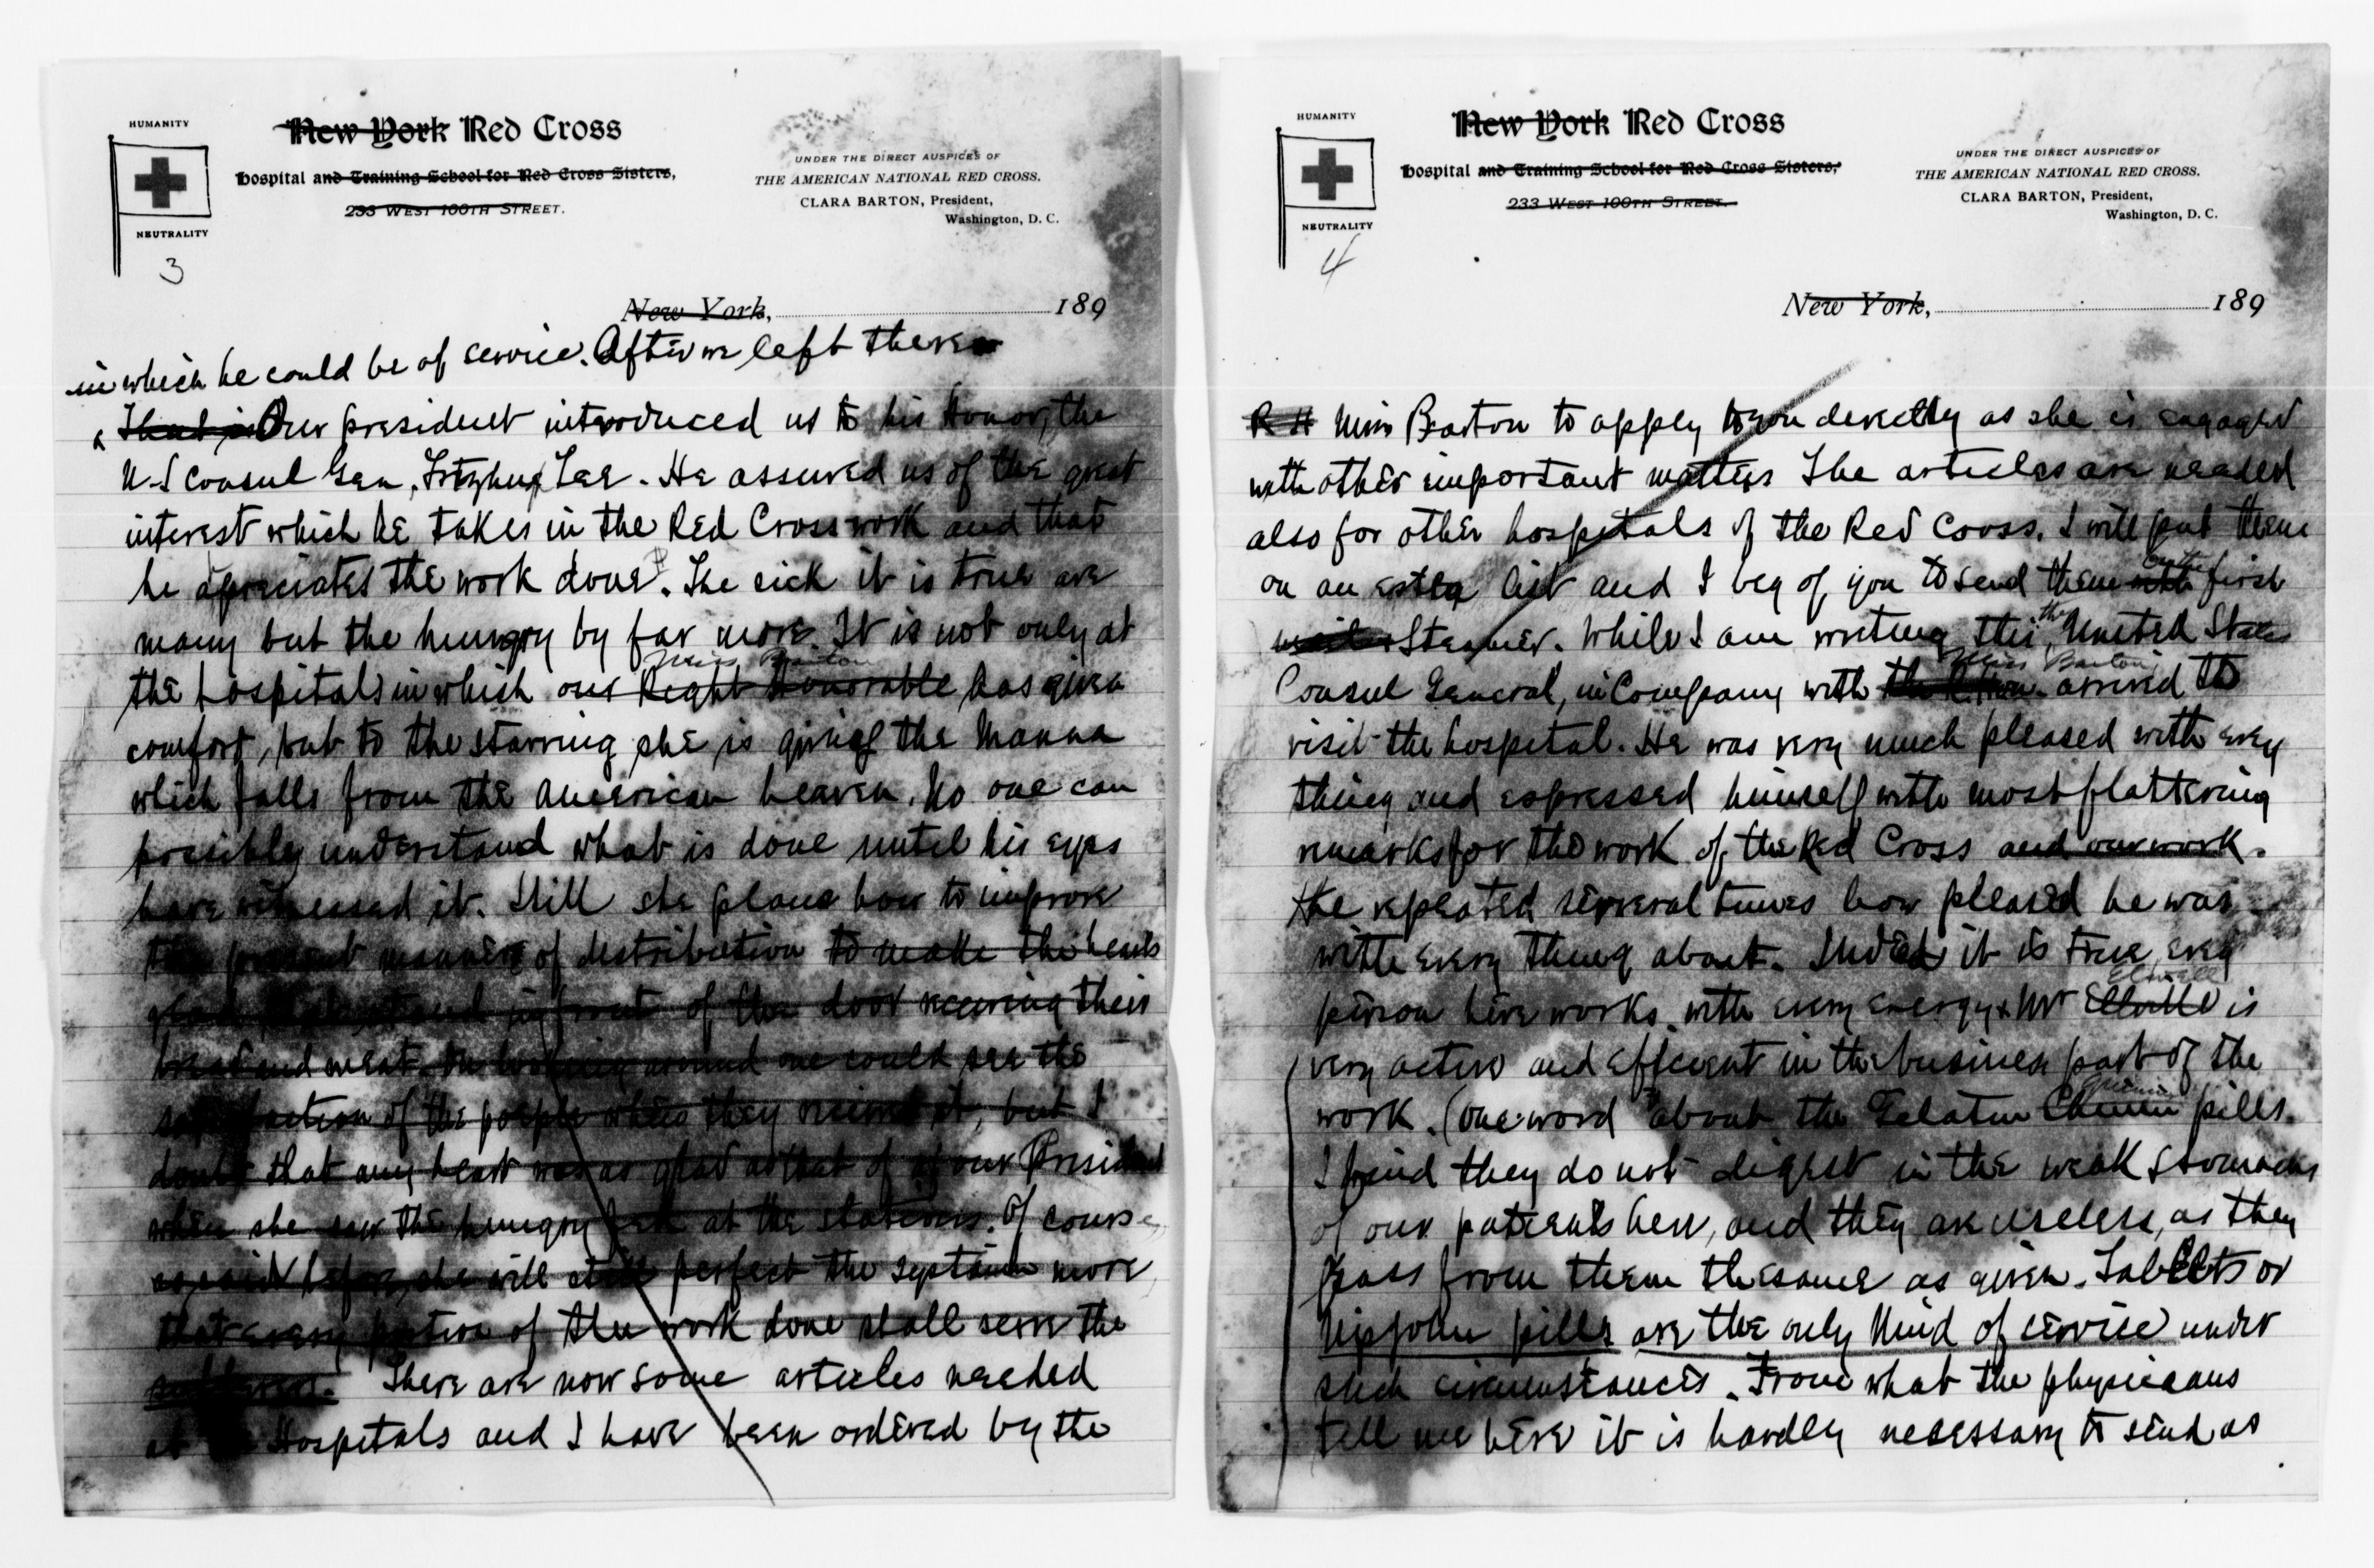 HUMANITY
New York Red Cross
Hospital and Training School for Red Cross Sisters,
233 WEST 100TH STREET.
NEUTRALITY
UNDER THE DIRECT AUSPICES OF
THE AMERICAN NATIONAL RED CROSS.
CLARA BARTON, President,
Washington, D. C.
3
New York, 189
in which he could be of service. After we left there
Our president introduced us to his Honor, the
U-S Consul Gen, Fitzhug Lee. He assured us of the great
interest which he takes in the Red Cross work and that
he apreciates the work done. The sick it is true are
many but the hungry by far more. It is not only at
Miss Barton
the hospitals in which our Right Honorable has given
comfort, but to the starving she is giving the Manna
which falls from the American heaven. No one can
possibly understand what is done until his eyes
have witnessed it. Still she plans how to improve
the present manner of distribution to make the hearts
in front of the door receiving their
bread and meat. On looking around one could see the
satisfaction of the people when they received it, but I
doubt that any heart was as glad as that of of our President
when she saw the hungry fed at the stations. Of course
as said before, she will still perfect the system more
that every portion of the work done shall serve the
sufferers. There are now some articles needed
at Hospitals and I have been ordered by the
HUMANITY
New York Red Cross
Hospital and Training School for Red Cross Sisters,
233 WEST 100TH STREET.
NEUTRALITY
UNDER THE DIRECT AUSPICES OF
THE AMERICAN NATIONAL RED CROSS.
CLARA BARTON, President,
Washington, D. C.
4
New York, 189
R H Miss Barton to apply to you directly as she is engaged
with other important matters The articles are needed
also for other hospitals of the Red Cross. I will put them
by the
on an extra list and I beg of you to send them with first
the
mail Steamer. While I am writing this United States
Miss Barton
Consul General, in Company with the R. Hon. arrived to
visit the hospital. He was very much pleased with evey
thing and expressed himself with most flattering
remarks for the work of the Red Cross and our work.
He repeated several times how pleased he was
with every thing about. Indeed it is true, evey
Elwell
person here works with every energy & Mr is
very active and efficient in the business part of the
Quinine
work. (One word about the Gelatin pills.
I find they do not digest in the weak stomachs
of our patients here, and they are useless, as they
pass from them the same as given. Tablets or
Upjohn pills are the only kind of service under
such circumstances. From what the physicians
tell me here it is hardly necessary to send as